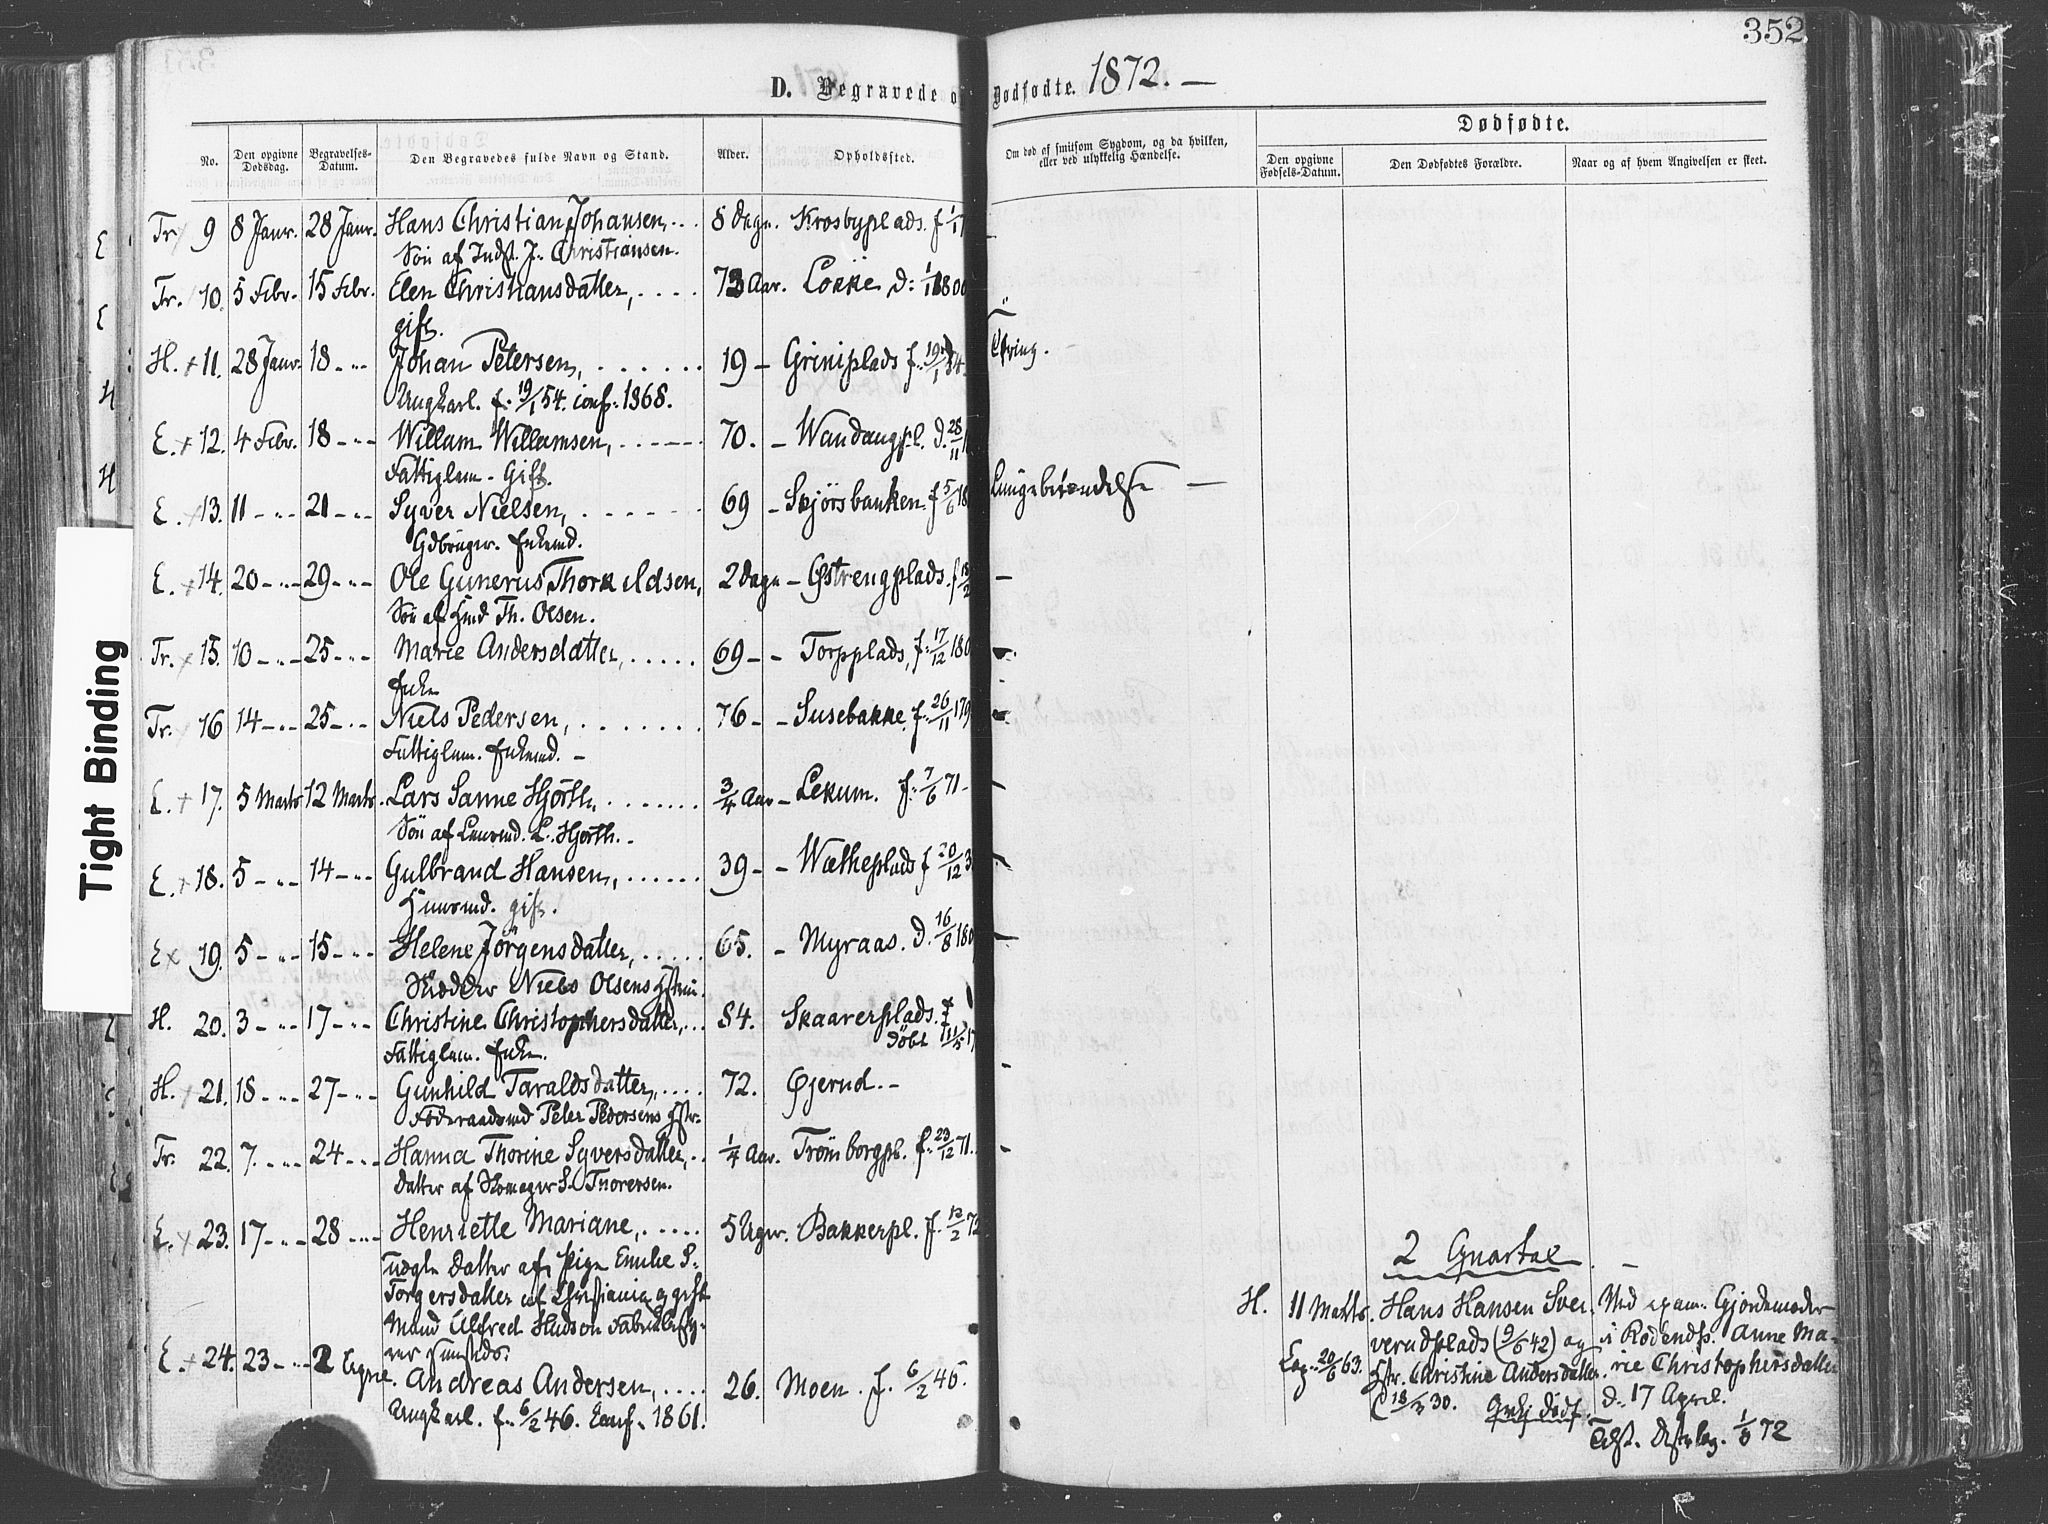 352
D. Begravede o
Dødfødte. 1872. —
No.
Den opgivne Dødsdag.
Begravelses-Datum.
Den Begravedes fulde Navn og Stand.
Alder.
Opholdssted.
Om død af smitsom Sygdom, og da hvilken,
eller ved ulykkelig Hændelse.
Dødfødte.
Den opgivne Fødsels-Datum.
Den Dødfødtes Forældre.
Naar og af hvem Angivelsen er skeet.
Tr. 9 8 Janr. 28 Janr. Hans Christian Johansen, 8 dage. Krosbyplads. f 1/1
Søn af Inds. J. Christiansen.
Tr. 10. 5 Febr. 15 Febr. Elen Christiansdatter, 73 Aar. Løkke D: 1/1 1800
gift.
H. + 11. 28 Janr. 18 - " - Johan Petersen, 19 - Griniplads f. 19/1 54
Ungkarl. f. 19/1 54. conf. 1868.
E. + 12. 4 Febr. 18 - " - Willam Willamsen, 70. - Wandangpl. D. 28/11
Fattiglem. Gift.
E. + 13. 11 - " - 21 - " - Syver Nielsen, 69 - Skjørsbanken f 5/6 18 Lungebetændelse —
Gdbruger. Enkemd.
E. + 14. 20 - " - 29 - " - Ole Gunerus Thorkildsen, 2 dage - Østrengplads. f 18/2
Søn af Hmd Th. Olsen.
Tr. + 15. 10 - " - 25 - " - Marie Andersdatter, 69 - - Torpplads, f. 17/12 180
Enke
Tr. 16 14 - " - 25 - " - Niels Pedersen, 76 - - Susebakke. f. 26/11 179
Fattiglem. Enkemd. -
E. + 17. 5 Marts 12 Marts. Lars Sanne Hjorth, 3/4 Aar - Lekum. f. 7/6 71 -
Søn af L. Hjorth. -
E. + 18. 5 - " - 14 - " - Gulbrand Hansen, 39 - - Wætheplads f 20/12 3
Husmd. gift.
E x 19. 5 - " - 15 - " - Helene Jørgensdatter, 65. - Myraas. D. 16/8 180
Skrædder Niels Olsens
H. 20. 3 - " - 17 - " - Christine Christophersdatter, 84. Skaarerplads.
Fattiglem. Enke. Døbt 11/5 17
H. + 21. 18 - " - 27 - " - Gunhild Taraldsdatter, 72. Øjerud. -
Føderaadsmd Peter Pedersens Hstr.
Tr. 22. 7. - " - 24 - " - Hanna Thorine Syversdatter, 1/4 Aar. Trømborgpl. f. 23/12 71.
Datter af Skomager S. Thoresen.
E. + 23. 17 - " - 28 - " - Henriette Mariane, 5 Uger. Bakkerpl. f. 12/2 72
uægte Datter af Pige Emilie S.
Torgersdatter af Christiania og gift
Mand Alfred Hudson
E. + 24. 23 - " - 2
Andreas Andersen, 26. Moen. f. 6/2 46.
Ungkarl. f. 6/2 46. Conf. 1861.
2 Quartal
H. 11 Marts. Hans Hansen Sver- Ved exam. Gjordemoder
verudplads (9/6 42) og i Rødends. Anne Ma-
20/6 63. Hstr. Christine Andersdatter. rie Christophersdatter
18/ 30. d. 17 April.
72
Tight Binding